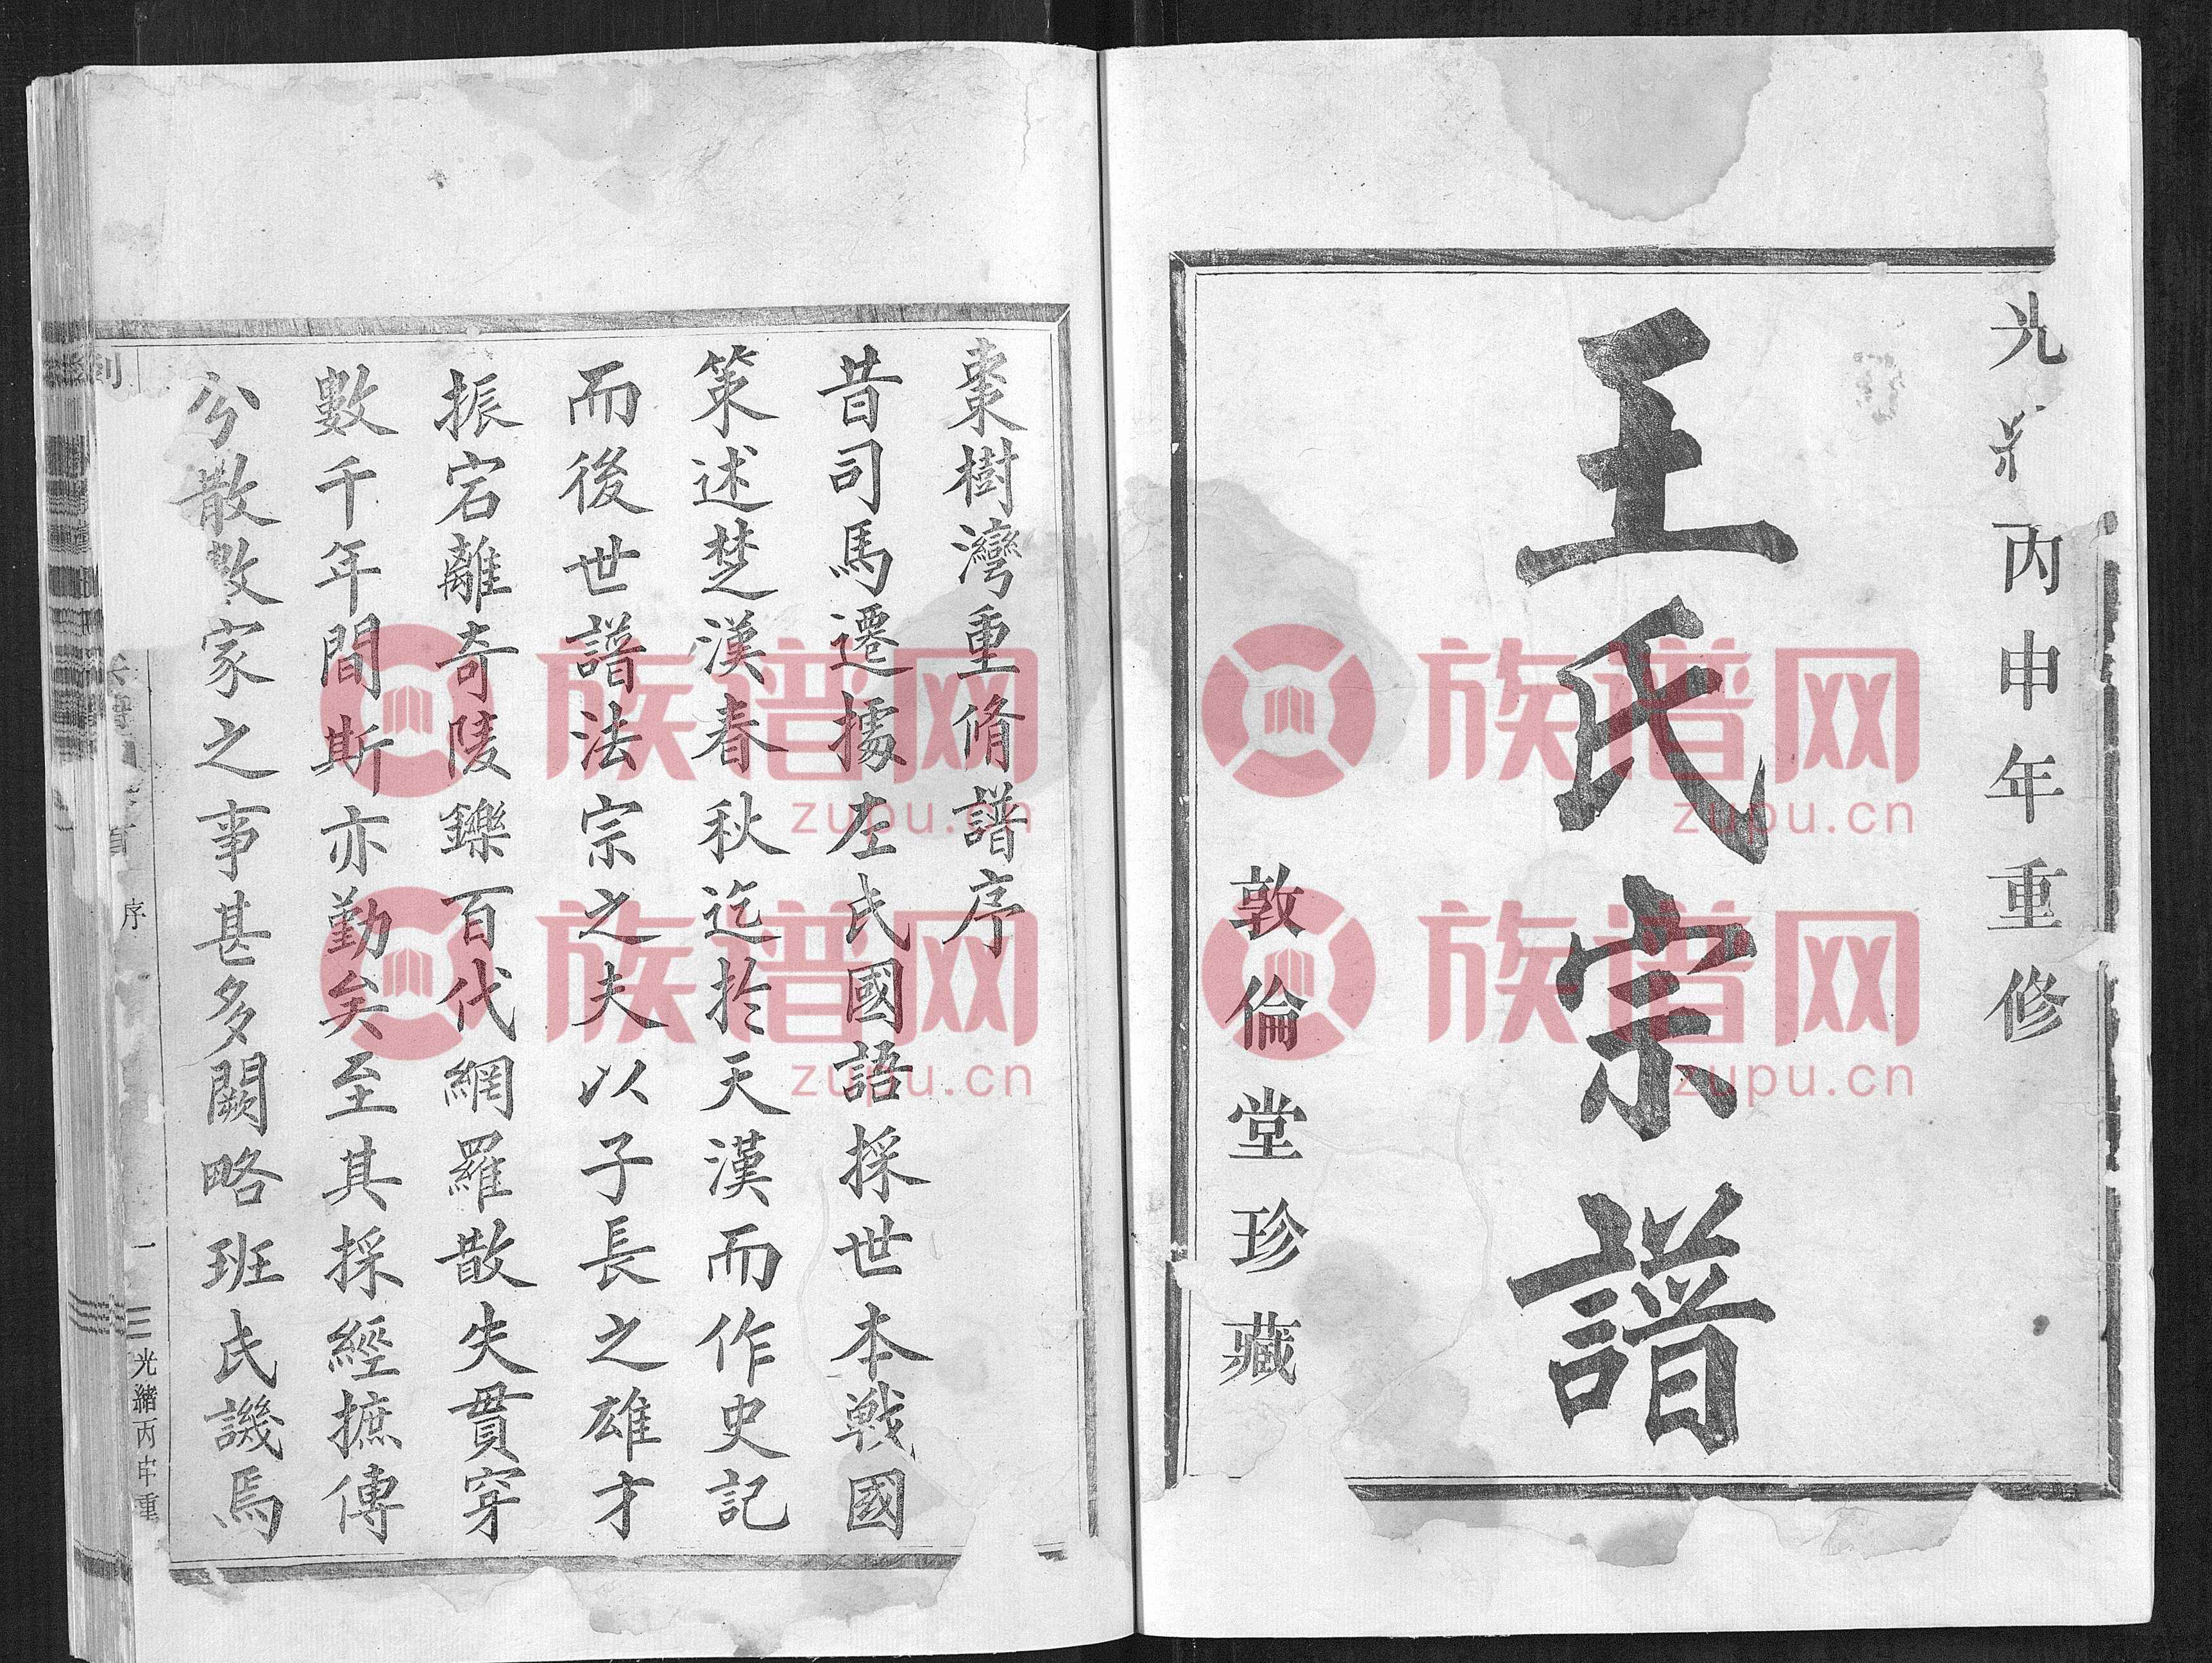 光 丙申年重修
王氏宗譜
敦倫堂珍藏
棗樹灣重脩譜序
昔司馬遷據左氏國語採世本戰國
策述楚漢春秋迄於天漢而作史記
而後世譜法宗之夫以子長之雄才
振宕離奇陵鑠百代網羅散失貫穿
數千年間斯亦勤矣至其採經摭傳
分散數家之事甚多闕略班氏譏焉
序
一
光緒丙申重
族谱网
zupu.cn
族谱网
zupu.cn
族谱网
zupu.cn
族谱网
zupu.cn